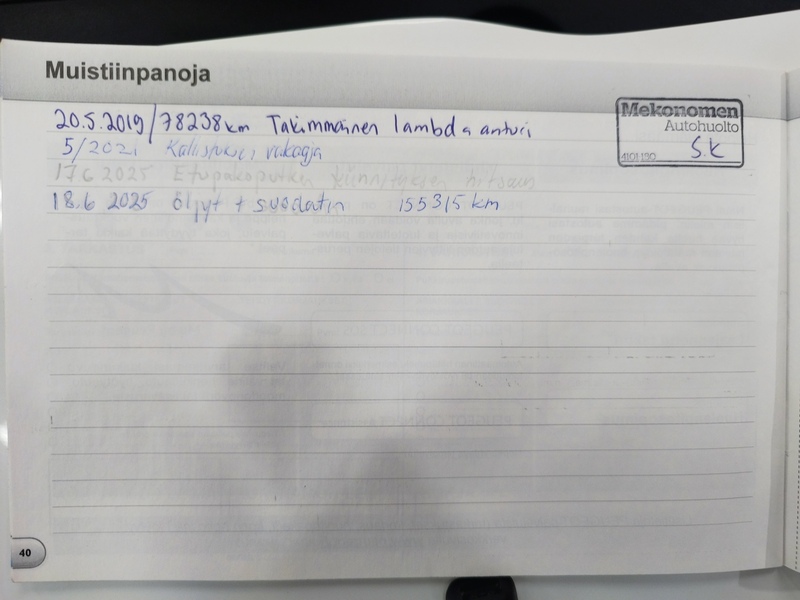 Muistiinpanoja
20.5.2019/78238km Takimmainen lambda anturi
Mekonomen
Autohuolto
S.K
5/2021 vakaaja
17.6 2025 Etupakoputken kiinnityksen hitsaus
18.6 2025 öljyt + suodatin 155315 km
40